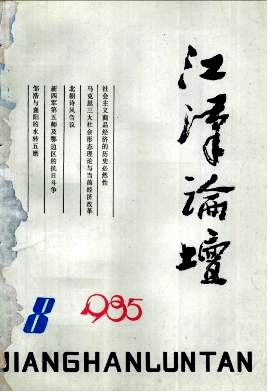 江汉论坛
社会主义商品经济的历史必然性
马克思三大社会形态理论与当前经济改革
北朝诗风刍议
新四军第五师及鄂边区的抗日斗争
邹浩与襄阳的水转五磨
8
1985
JIANGHANLUNTAN